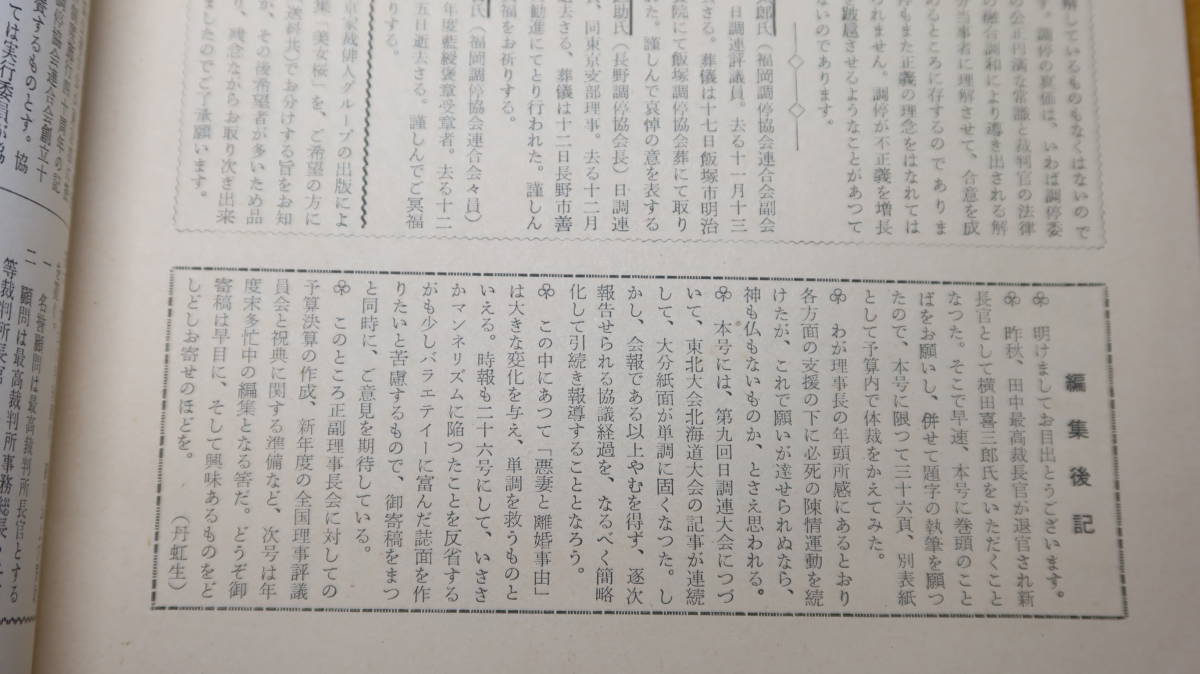 略しているものもなくはないので
調停の真価は、いわば調停委
の公平円満な常識と裁判官の法律
の融合調和により導き出される解
当事者に理解させて、合意を成
めるところに存するのでありま
停もまた正義の理念をはなれては
られません。調停が不正義を増長
を跋扈させるようなことがあつて
ないのであります。
郎氏（福岡調停協会連合会副会
日調連評議員。去る十一月十三
去さる。葬儀は十七日飯塚市明治
会院にて飯塚調停協会葬にて取り
れた。謹しんで哀悼の意を表する
助氏（長野調停協会長）日調連
、同東京支部理事。去る十二月
去さる、葬儀は十二日長野市善
勧進にてとり行われた。謹しん
福をお祈りする。
氏（福岡調停協会連合会々員）
年度藍綬褒章受章者。去る十二
五日逝去さる。謹しんでご冥福
りする。
京家裁俳人グループの出版によ
集「美女桜」を、ご希望の方に
送料共）でお分けする旨をお知
が、その後希望者が多いため品
り、残念ながらお取り次ぎ出来
ましたのでご了承願います。
編集後記
明けましてお目出とうございます。
昨秋、田中最高裁長官が退官され新
長官として横田喜三郎氏をいただくこと
なつた。そこで早速、本号に巻頭のこと
ばをお願いし、併せて題字の執筆を願つ
たので、本号に限つて三十六頁、別表紙
として予算内で体裁をかえてみた。
わが理事長の年頭所感にあるとおり
各方面の支援の下に必死の陳情運動を続
けたが、これで願いが達せられぬなら、
神も仏もないものか、とさえ思われる。
本号には、第九回日調連大会につづ
いて、東北大会北海道大会の記事が連続
して、大分紙面が単調に固くなつた。し
かし、会報である以上やむを得ず、逐次
報告せられる協議経過を、なるべく簡略
化して引続き報導することとなろう。
この中にあつて「悪妻と離婚事由」
は大きな変化を与え、単調を救うものと
いえる。時報も二十六号にして、いささ
かマンネリズムに陥つたことを反省する
がも少しバラエテイーに富んだ誌面を作
りたいと苦慮するもので、御寄稿をまつ
と同時に、ご意見を期待している。
このところ正副理事長会に対しての
予算決算の作成、新年度の全国理事評議
員会と祝典に関する準備など、次号は年
度末多忙中の編集となる筈だ。どうぞ御
寄稿は早目に、そして興味あるものをど
しどしお寄せのほどを。
（丹虹生）
停協会連合会創立十
置するものとす。協
ては実行委員が協
一　名誉顧問は最高裁判所長官とする
二　顧問は最高裁判所事務総長
等裁判所長官